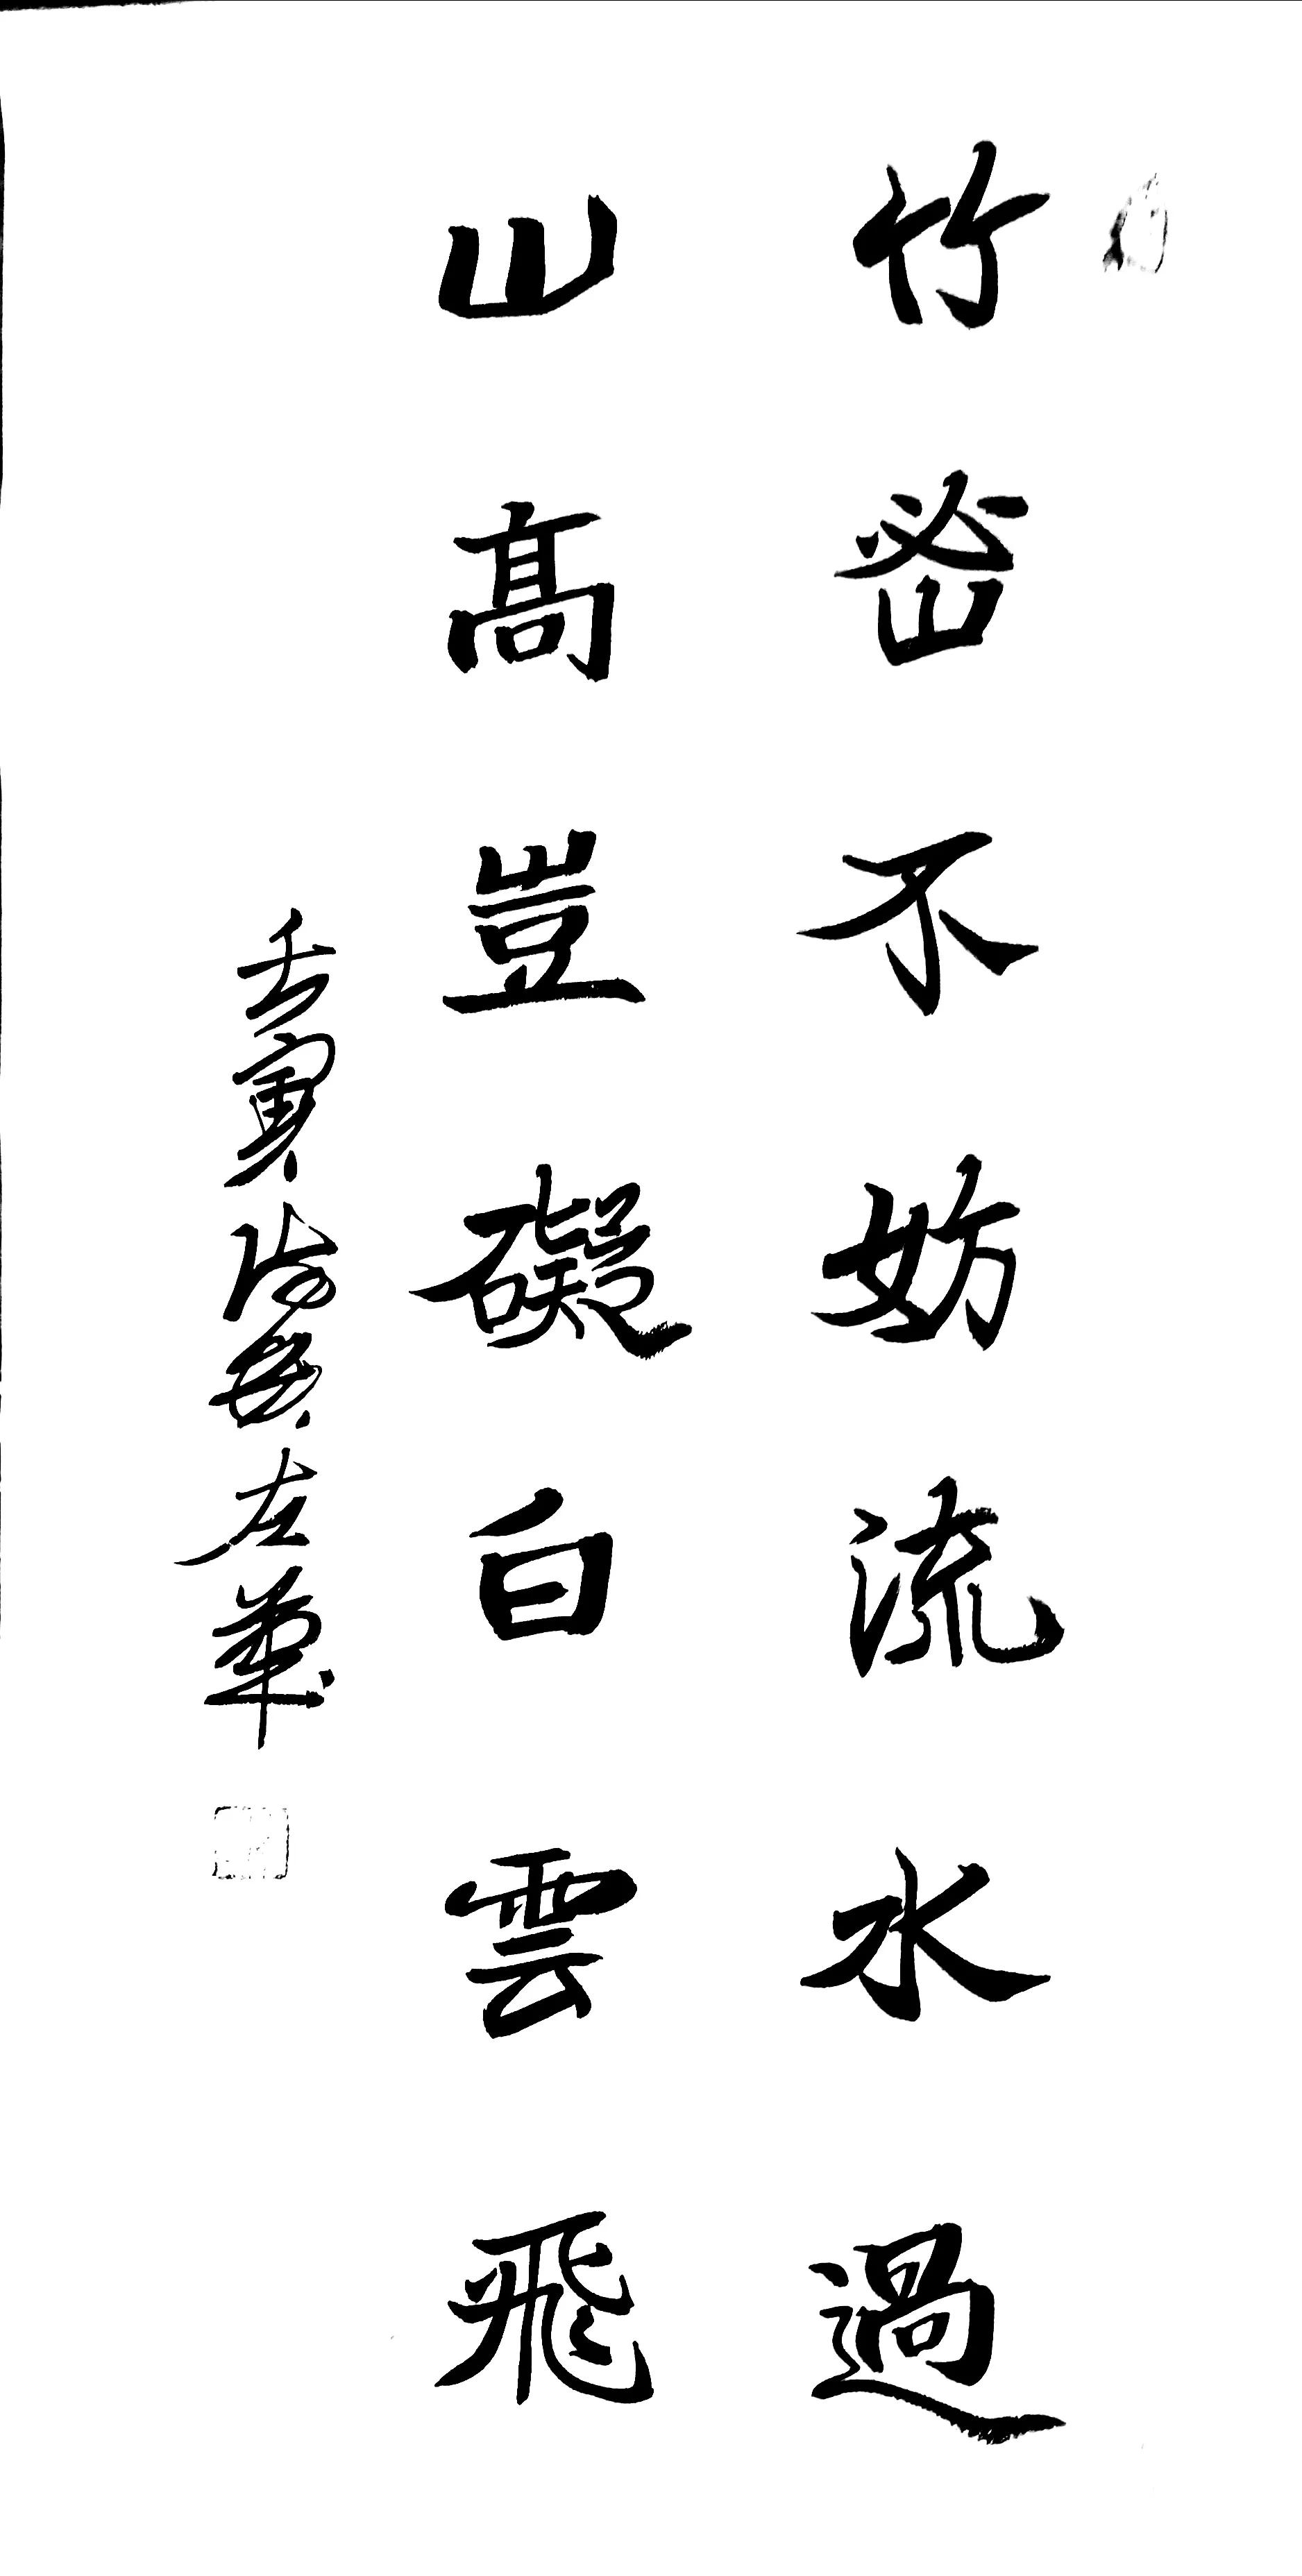 竹密不妨流水過
山高豈礙白雲飛
壬寅 左華